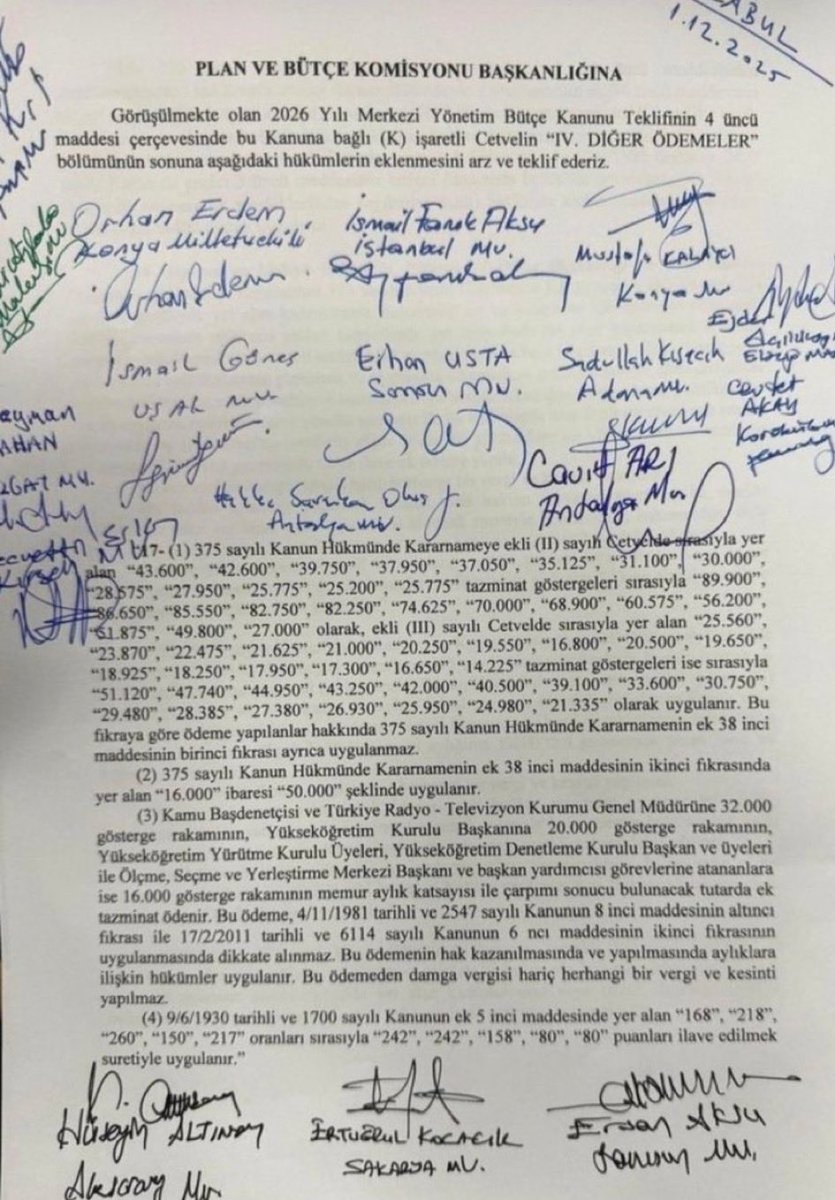 KABUL
1.12.2025
PLAN VE BÜTÇE KOMİSYONU BAŞKANLIĞINA
Görüşülmekte olan 2026 Yılı Merkezi Yönetim Bütçe Kanunu Teklifinin 4 üncü
maddesi çerçevesinde bu Kanuna bağlı (K) işaretli Cetvelin “IV. DİĞER ÖDEMELER”
bölümünün sonuna aşağıdaki hükümlerin eklenmesini arz ve teklif ederiz.
Orhan Erdem
Konya Milletvekili
İsmail Faruk Aksu
İstanbul Mv.
Mustafa KALAYCI
Konya Mv
İsmail Güneş
UŞAK MV
Erhan USTA
Samsun MV.
Sadullah Kısacık
Adana Mv.
Cevdet
AKAY
Karabük
Cavit ARI
Antalya Mv.
Hakkı Saruhan Oluç
Antalya Mv.
17- (1) 375 sayılı Kanun Hükmünde Kararnameye ekli (II) sayılı Cetvelde sırasıyla yer
alan “43.600”, “42.600”, “39.750”, “37.950”, “37.050”, “35.125”, “31.100”, “30.000”,
“28.575”, “27.950”, “25.775”, “25.200”, “25.775” tazminat göstergeleri sırasıyla “89.900”,
“86.650”, “85.550”, “82.750”, “82.250”, “74.625”, “70.000”, “68.900”, “60.575”, “56.200”,
“51.875”, “49.800”, “27.000” olarak, ekli (III) sayılı Cetvelde sırasıyla yer alan “25.560”,
“23.870”, “22.475”, “21.625”, “21.000”, “20.250”, “19.550”, “16.800”, “20.500”, “19.650”,
“18.925”, “18.250”, “17.950”, “17.300”, “16.650”, “14.225” tazminat göstergeleri ise sırasıyla
“51.120”, “47.740”, “44.950”, “43.250”, “42.000”, “40.500”, “39.100”, “33.600”, “30.750”,
“29.480”, “28.385”, “27.380”, “26.930”, “25.950”, “24.980”, “21.335” olarak uygulanır. Bu
fıkraya göre ödeme yapılanlar hakkında 375 sayılı Kanun Hükmünde Kararnamenin ek 38 inci
maddesinin birinci fıkrası ayrıca uygulanmaz.
(2) 375 sayılı Kanun Hükmünde Kararnamenin ek 38 inci maddesinin ikinci fıkrasında
yer alan “16.000” ibaresi “50.000” şeklinde uygulanır.
(3) Kamu Başdenetçisi ve Türkiye Radyo - Televizyon Kurumu Genel Müdürüne 32.000
gösterge rakamının, Yükseköğretim Kurulu Başkanına 20.000 gösterge rakamının,
Yükseköğretim Yürütme Kurulu Üyeleri, Yükseköğretim Denetleme Kurulu Başkan ve üyeleri
ile Ölçme, Seçme ve Yerleştirme Merkezi Başkanı ve başkan yardımcısı görevlerine atananlara
ise 16.000 gösterge rakamının memur aylık katsayısı ile çarpımı sonucu bulunacak tutarda ek
tazminat ödenir. Bu ödeme, 4/11/1981 tarihli ve 2547 sayılı Kanunun 8 inci maddesinin altıncı
fıkrası ile 17/2/2011 tarihli ve 6114 sayılı Kanunun 6 ncı maddesinin ikinci fıkrasının
uygulanmasında dikkate alınmaz. Bu ödemenin hak kazanılmasında ve yapılmasında aylıklara
ilişkin hükümler uygulanır. Bu ödemeden damga vergisi hariç herhangi bir vergi ve kesinti
yapılmaz.
(4) 9/6/1930 tarihli ve 1700 sayılı Kanunun ek 5 inci maddesinde yer alan “168”, “218”,
“260”, “150”, “217” oranları sırasıyla “242”, “242”, “158”, “80”, “80” puanları ilave edilmek
suretiyle uygulanır.”
Hüseyin ALTINSOY
Aksaray Mv.
ERTUĞRUL KOCACIK
SAKARYA MV.
Ersan AKSU
Samsun Mv.